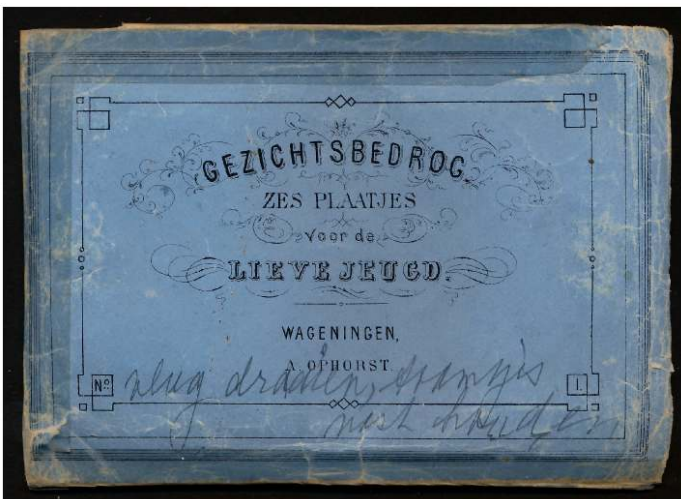 GEZICHTSBEDROG.
ZES PLAATJES
Voor de
LIEVE JEUGD.
WAGENINGEN,
A. OPHORST.
No. I.
vlug draaien,
vast houden